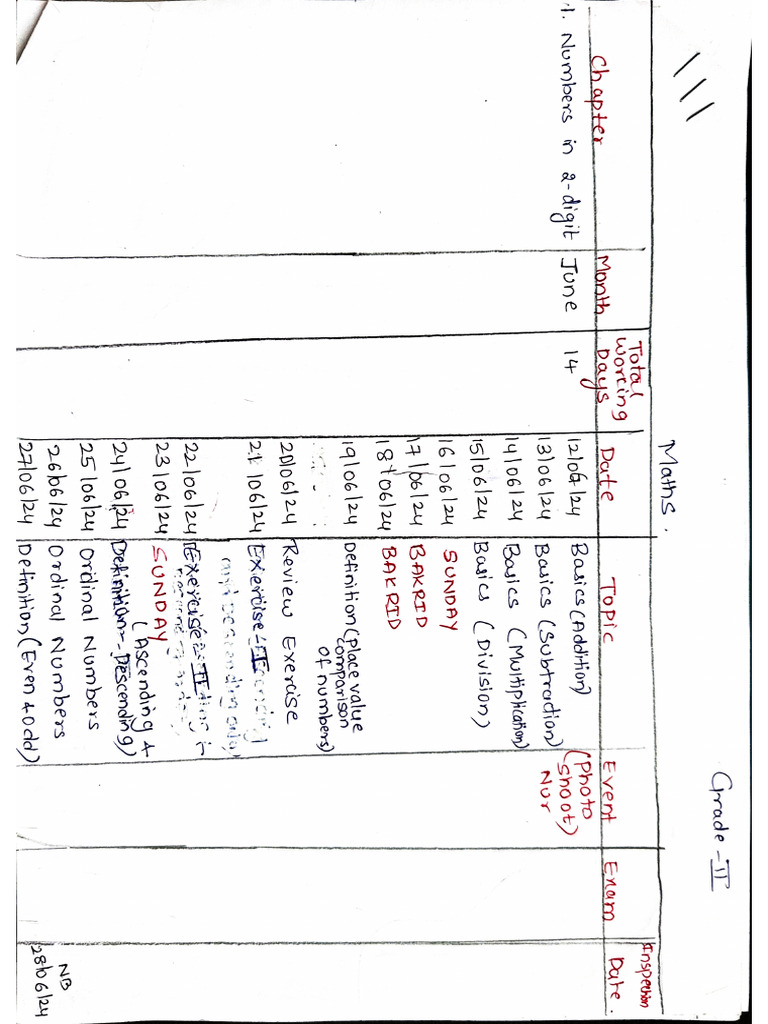 Grade - II
Maths.
Chapter Month Total Worcing Days Date Topic Event Enam Inspection Date.
1. Numbers in 2-digit June 14 12/06/24 Basics (Addition) (Photo shoot) Nur
13/06/24 Basics (Subtraction)
14/06/24 Basics (Multiplication)
15/06/24 Basics (Division)
16/06/24 SUNDAY
17/06/24 BAKRID
18/06/24 BAKRID
19/06/24 Definition (Place value
comparison
of numbers)
20/06/24 Review Exercise
21/06/24 Exercise - I
22/06/24 Exercise - II
23/06/24 SUNDAY
(Ascending &
24/06/24 Definition - Descending)
25/06/24 Ordinal Numbers
26/06/24 Ordinal Numbers
27/06/24 Definition (Even & Odd)
NB
28/06/24